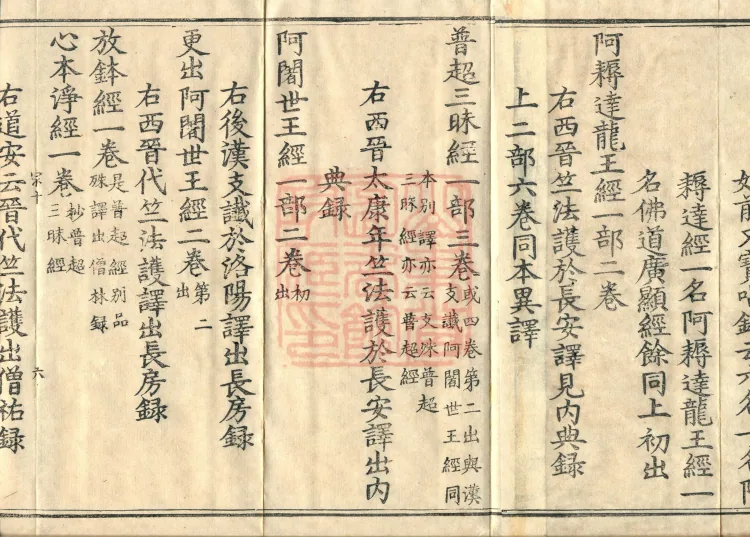 耨達經一名阿耨達龍王經一
名佛道廣顯經餘同上初出
阿耨達龍王經一部二卷
右西晉竺法護於長安譯見内典録
上二部六卷同本異譯
普超三昧經一部三卷
或四卷第二出與漢
支讖阿闍世王經同
本別譯亦云文殊普超
三昧經亦云普超經
右西晉太康年竺法護於長安譯出内
典録
阿闍世王經一部二卷初
出
右後漢支讖於洛陽譯出長房録
更出阿闍世王經二卷第二
出
右西晉代竺法護譯出長房録
放鉢經一卷是普超經別品
殊譯出僧林録
心本淨經一卷抄普超
三昧經
宗十 六
右道安云晉代竺法護出僧祐録